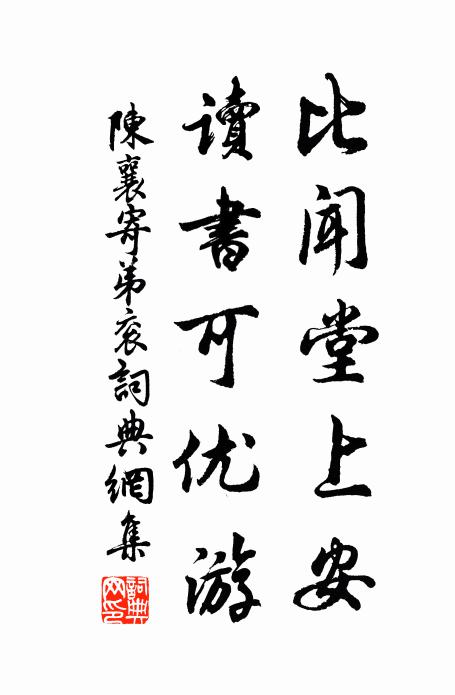 比闻堂上安
讀書可优游
陳襄寄弟衮詞典網集
詞典网印